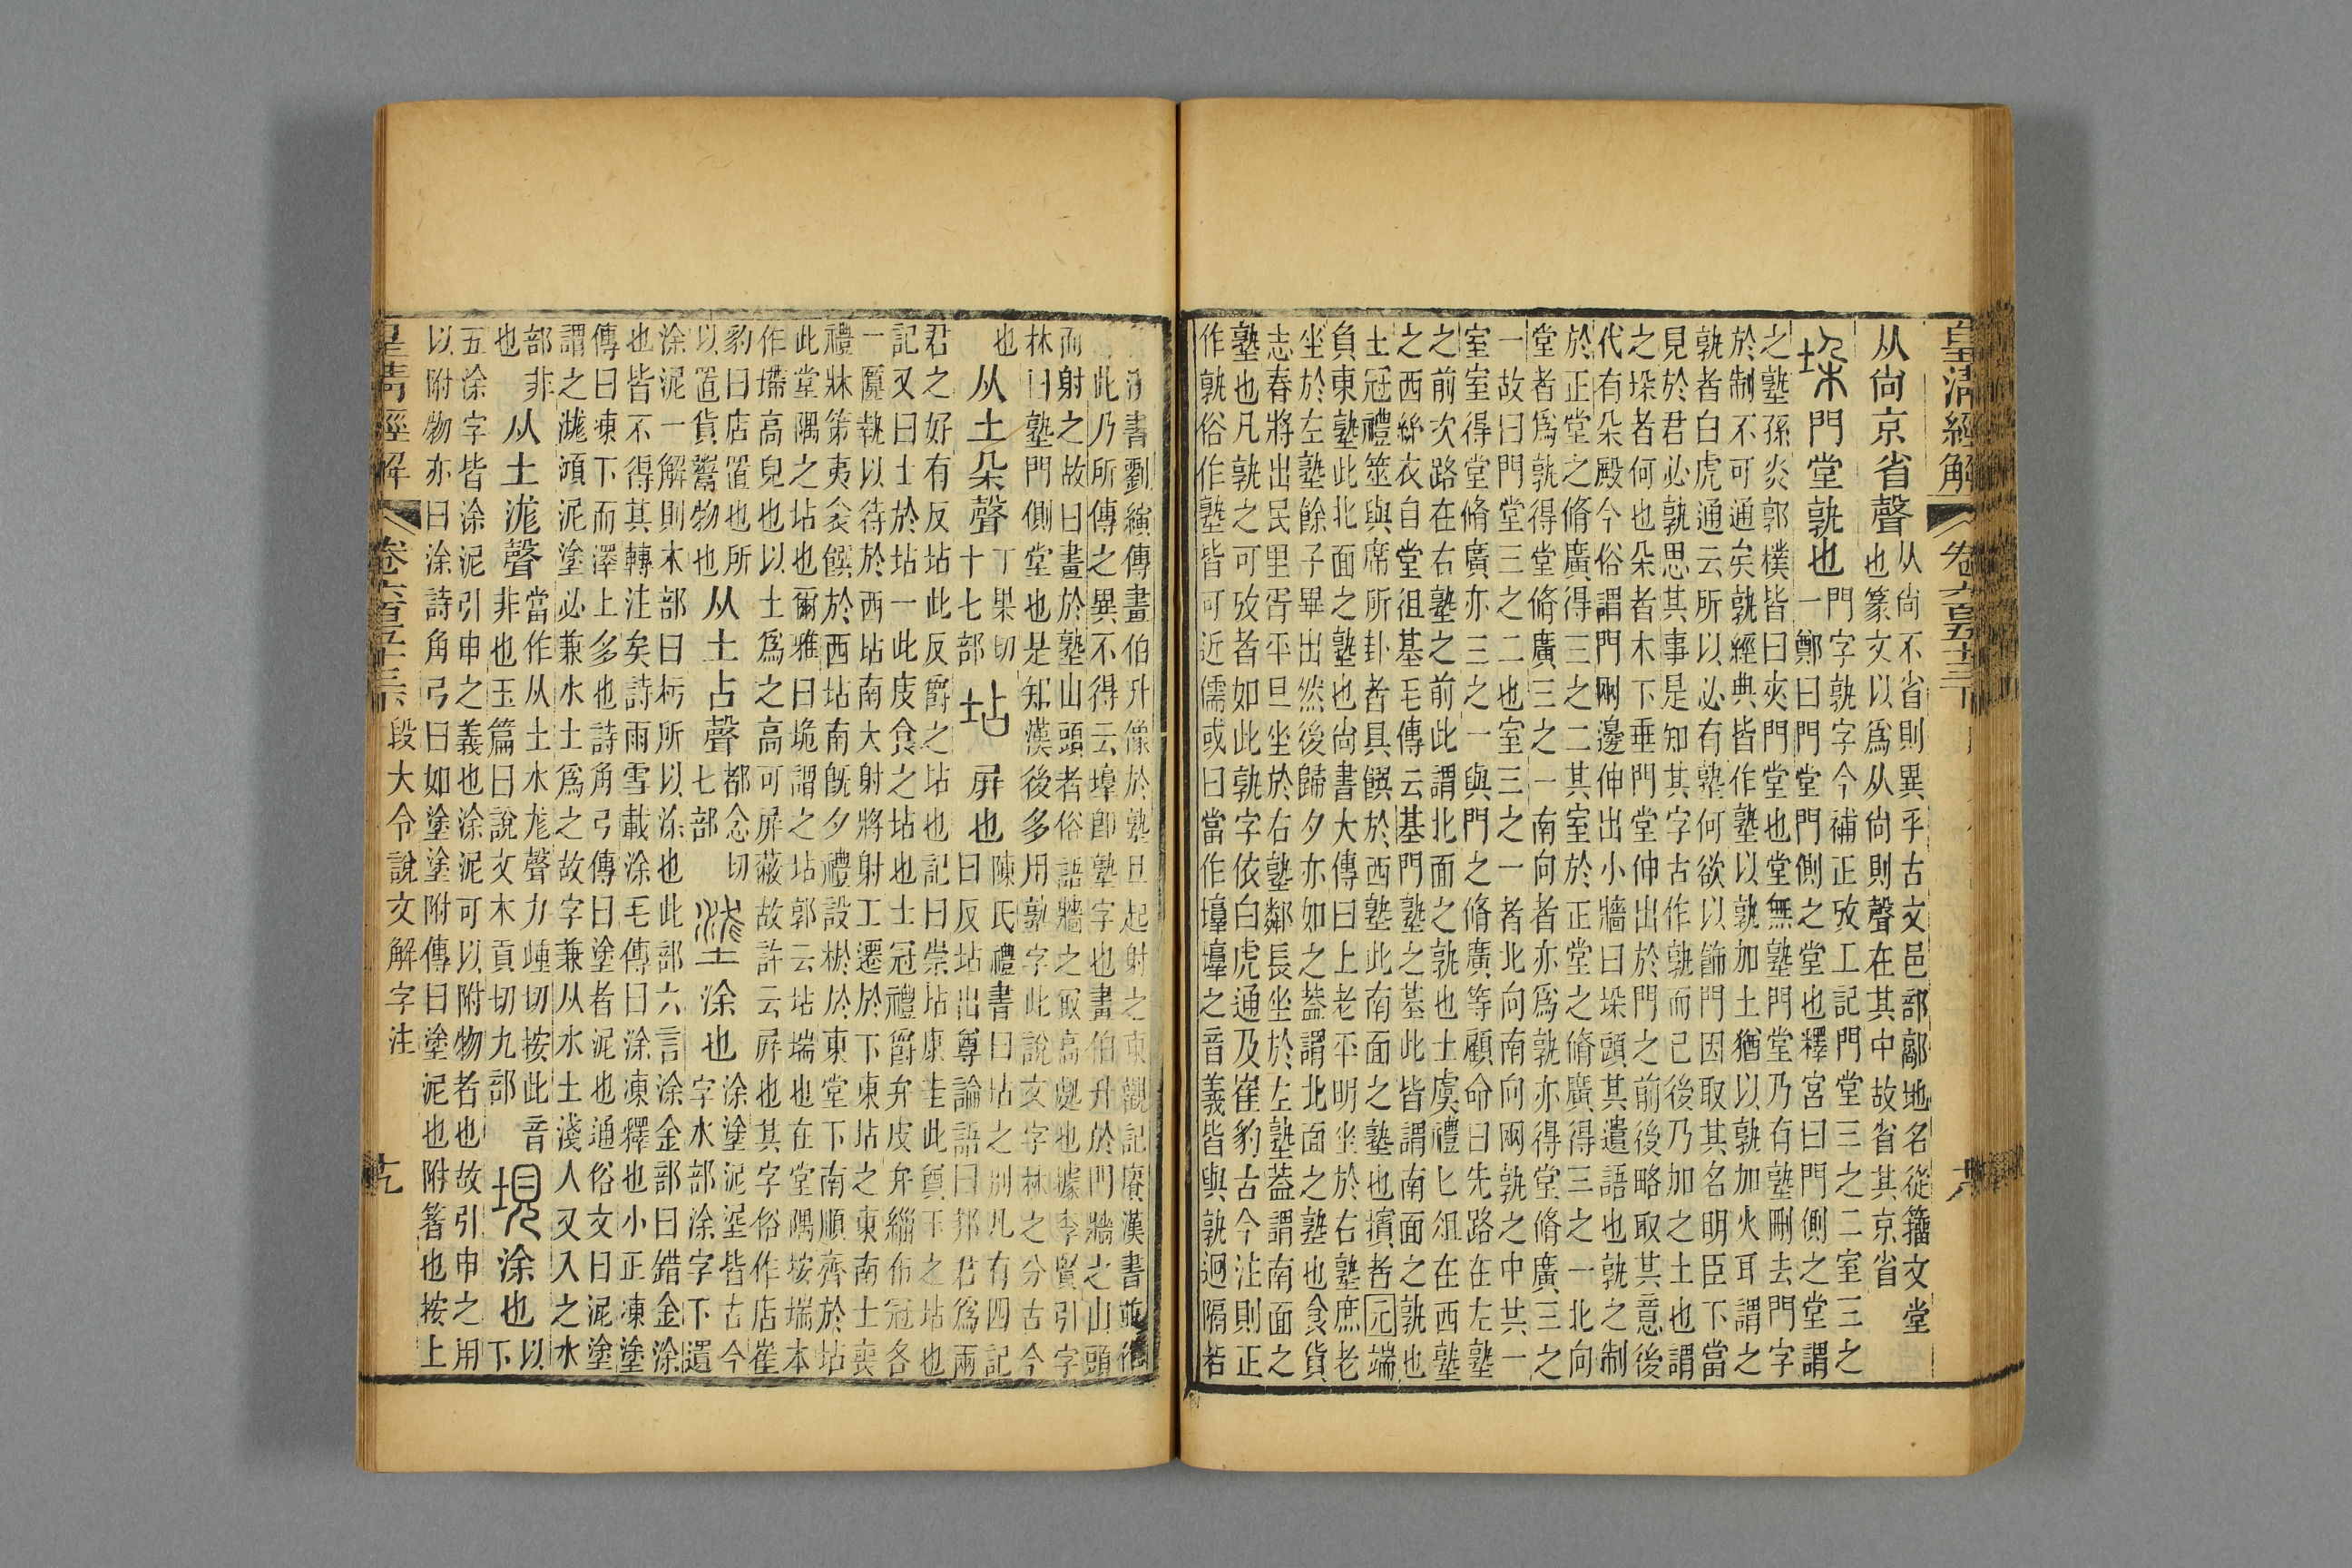 皇清經解 卷六百五十三下
从尙京省聲
从尙不省則異乎古文邑部鄗地名從籒文堂
也篆文以爲从尙則聲在其中故省其京省
垜門堂孰也
門字孰字今補正攷工記門堂三之二室三之
一鄭曰門堂門側之堂也釋宫曰門側之堂謂
之塾孫炎郭樸皆曰夾門堂也堂無塾門堂乃有塾刪去門字
於制不可通矣孰經典皆作塾以孰加土猶以孰加火耳謂之
孰者白虎通云所以必有塾何欲以飾門因取其名明臣下當
見於君必孰思其事是知其字古作孰而已後乃加之土也謂
之垜者何也朵者木下垂門堂伸出於門之前後略取其意後
代有朵殿今俗謂門兩邊伸出小牆曰垜頭其遺語也孰之制
於正堂之脩廣得三之二其室於正堂之脩廣得三之一北向
堂者爲孰得堂脩廣三之一南向者亦爲孰亦得堂脩廣三之
一故曰門堂三之二也室三之一者北向南向兩孰之中其一
室室得堂脩廣亦三之一與門之脩廣等顧命曰先路在左塾
之前次路在右塾之前此謂北面之孰也士虞禮匕俎在西塾
之西絲衣自堂徂基毛傳云基門塾之基此皆謂南面之孰也
士冠禮筮與席所卦者具饌於西塾此南面之塾也擯者元端
負東塾此北面之塾也尙書大傳曰上老平明坐於右塾庶老
坐於左塾餘子畢出然後歸夕亦如之葢謂北面之塾也食貨
志春將出民里胥平旦坐於右塾鄰長坐於左塾葢謂南面之
塾也凡孰之可攷者如此孰字依白虎通及崔豹古今注則正
作孰俗作塾皆可近儒或曰當作𡑣𡑣之音義皆與孰迥隔若
漢書劉縯傳畫伯升像於塾旦起射之東觀記 漢書並
此乃所傳之異不得云𡑣卽塾字也畫伯升於門牆之山頭
而射之故曰畫於塾山頭者俗語牆之最高處也據李賢引字
林曰塾門側堂也是知漢後多用塾字此說文字林之分古今
也
从土朵聲
丁果切
十七部
坫屏也
陳氏禮書曰坫之別凡有四記
曰反坫出尊論語曰邦君爲兩
君之好有反坫此反爵之坫也記曰崇坫康圭此奠玉之坫也
記又曰士於坫一此庋食之坫也士冠禮爵弁皮弁緇布冠各
一匴執以待於西坫南大射將射工遷於下東坫之東南士喪
禮牀第夷衾饌於西坫南旣夕禮設棜於東堂下南順齊於坫
此堂隅之坫也爾雅曰垝謂之坫郭云坫端也在堂隅按端本
作 高皃也以土爲之高可屏蔽故許云屏也其字俗作店崔
豹曰店置也所
以置貨鬻物也
从土占聲
都念切
七部
涂也
涂塗泥 皆古今
字水部涂字下遺
涂泥一解則木部曰杇所以涂也此部六言涂金部曰錯金涂
也皆不得其轉注矣詩雨雪載涂毛傳曰涂凍釋也小正凍塗
傳曰凍下而澤上多也詩角弓傳曰塗者泥也通俗文曰泥塗
謂之 澒泥塗必兼水土爲之故字兼从水土淺人又入之水
部非
也
从土浝聲
當作从土水尨聲力歱切按此音
非也玉篇曰說文木貢切九部
垷涂也
以
下
五涂字皆涂泥引申之義也涂泥可以附物者也故引申之用
以附物亦曰涂詩角弓曰如塗塗附傳曰塗泥也附箸也按上
皇清經解 卷六百五十三下 段大令說文解字注